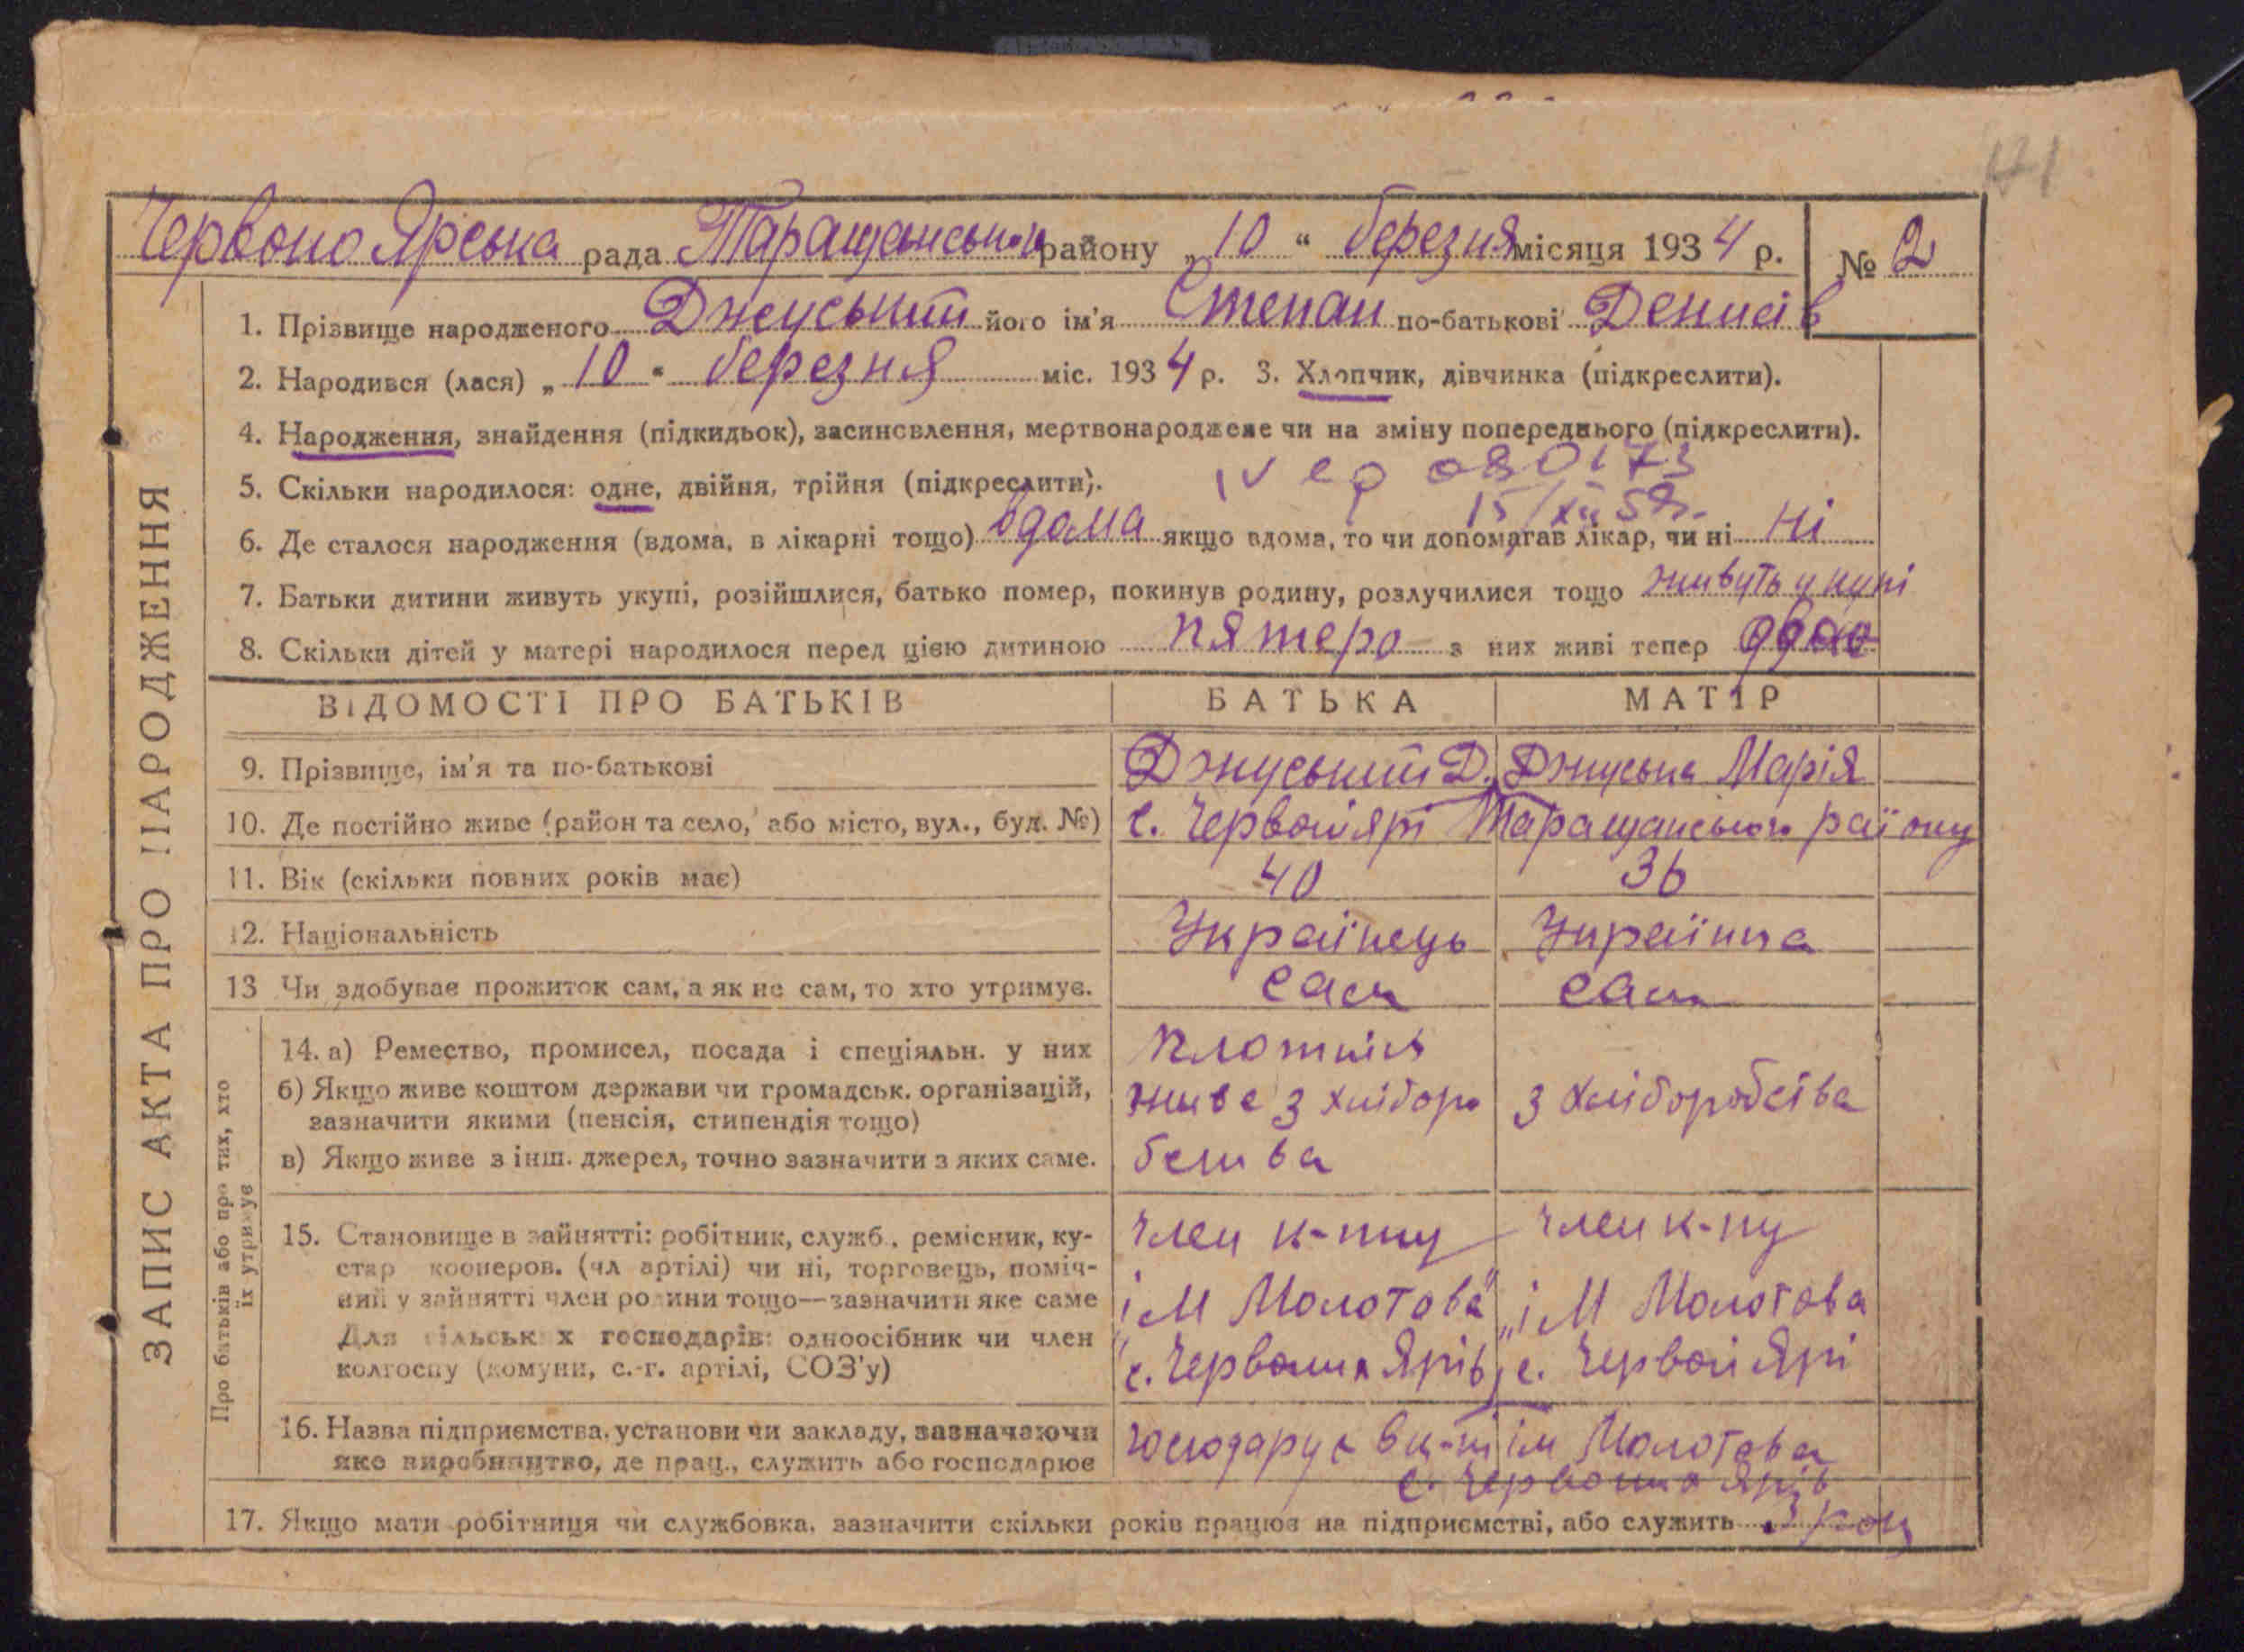 171
Червоно Ярська рада Таращанського району „10“ березня місяця 1934 р. № 2
1. Прізвище народженого Джуський його ім'я Степан по-батькові Денисів
2. Народився (лася) „10“ березня міс. 1934 р. 3. Хлопчик, дівчинка (підкреслити).
4. Народження, знайдення (підкидьок), засиновлення, мертвонароджене чи на зміну попереднього (підкреслити).
5. Скільки народилося: одне, двійня, трійня (підкреслити).
IV ер 080173
15/XII 59г.
6. Де сталося народження (вдома, в лікарні тощо) вдома якщо вдома, то чи допомагав лікар, чи ні ні
7. Батьки дитини живуть укупі, розійшлися, батько помер, покинув родину, розлучилися тощо живуть укупі
8. Скільки дітей у матері народилося перед цією дитиною пятеро з них живі тепер одно
ВІДОМОСТІ ПРО БАТЬКІВ БАТЬКА МАТІР
9. Прізвище, ім'я та по-батькові Джуський Д. Джуська Марія
10. Де постійно живе (район та село, або місто, вул., буд. №) с. Червоні Ярі Таращанського району
11. Вік (скільки повних років має) 40 36
12. Національність Українець Українка
13 Чи здобуває прожиток сам, а як не сам, то хто утримує. сам сама
14. а) Ремество, промисел, посада і спеціяльн. у них плотник
б) Якщо живе коштом держави чи громадськ. організацій, живе з хліборо з хліборобства
зазначити якими (пенсія, стипендія тощо)
в) Якщо живе з інш. джерел, точно зазначити з яких саме. бства
15. Становище в зайнятті: робітник, служб., ремісник, ку- член к-пу член к-пу
стар кооперов. (чл артілі) чи ні, торговець, поміч-
ний у зайнятті член родини тощо—зазначити яке саме ім Молотова" „ім Молотова
Для сільських господарів: одноосібник чи член
колгоспу (комуни, с.-г. артілі, СОЗ'у) с. Червоних Ярів с. Червоні Ярі
16. Назва підприємства, установи чи закладу, зазначаючи господарує в к-пі ім Молотова
яке виробництво, де прац., служить або господарює с. Червоних Ярів
17. Якщо мати робітниця чи службовка, зазначити скільки років працює на підприємстві, або служить 3 роц
Про батьків або про тих, хто
їх утримує
ЗАПИС АКТА ПРО НАРОДЖЕННЯ